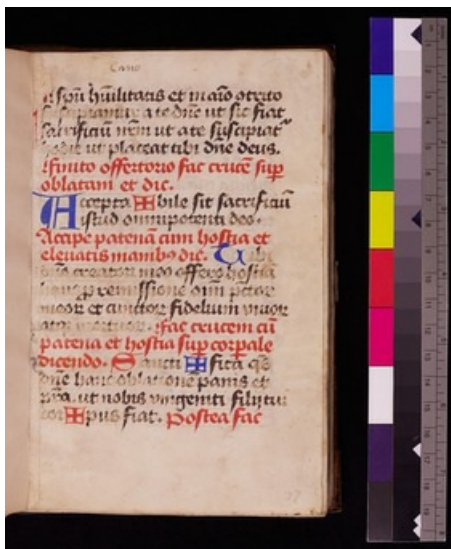 Cano
spū hūilitatis et in aīo otrito
suscipiamur a te dne ut sic fiat
sacrificiū nrm ut a te suscipiat
hodie ut placeat tibi dne deus.
finito offertorio fac crucē sup
oblatam et dic.
Accepta ✠ bile sit sacrificiū
istud omnipotenti deo.
Accipe patenā cum hostia et
elevatis manibꝰ dic. Tibi
dne creator meo offero hostiā
hanc p remissione oīm pctor
meor et cunctor fidelium vivor
atqꝫ mortuor. fac crucem cū
patena et hostia sup corpale
dicendo. Sancti ✠ fica qs
dne hanc oblatione panis et
ut nobis unigeniti filii tui
cor ✠ pus fiat. Postea fac